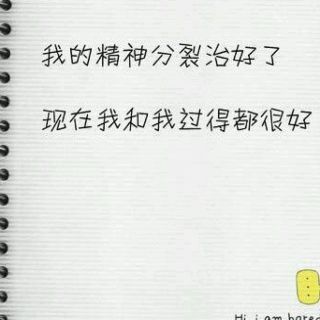 我的精神分裂治好了
现在我和我过得都很好
Hi i am bored